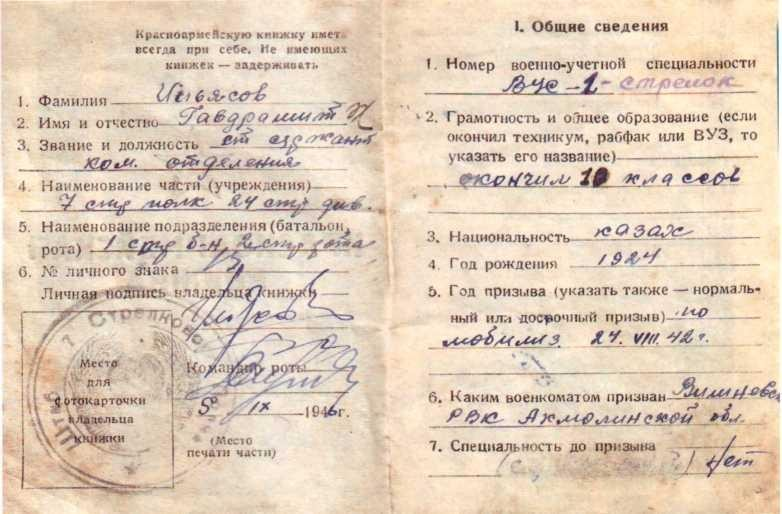 Красноармейскую книжку иметь
всегда при себе. Не имеющих
книжек — задерживать
1. Фамилия Ильясов
2. Имя и отчество
3. Звание и должность ст сержант
ком. отделения
4. Наименование части (учреждения)
7 стр полк 24 стр див.
5. Наименование подразделения (батальон,
рота) 1 стр б-н 2 стр рота
6. № личного знака
Личная подпись владельца книжки
Командир роты
IX 1946г.
Место
для
фотокарточки
владельца
книжки
(Место
печати части)
Штаб 7 Стрелково
I. Общие сведения
1. Номер военно-учетной специальности
ВУС-1-стрелок
2. Грамотность и общее образование (если
окончил техникум, рабфак или ВУЗ, то
указать его название)
окончил 10 классов
3. Национальность казах
4. Год рождения 1924
5. Год призыва (указать также — нормаль-
ный или досрочный призыв) по
мобилиз. 24. VIII. 42 г.
6. Каким военкоматом призван Вишневск
РВК Акмолинской обл.
7. Специальность до призыва
нет